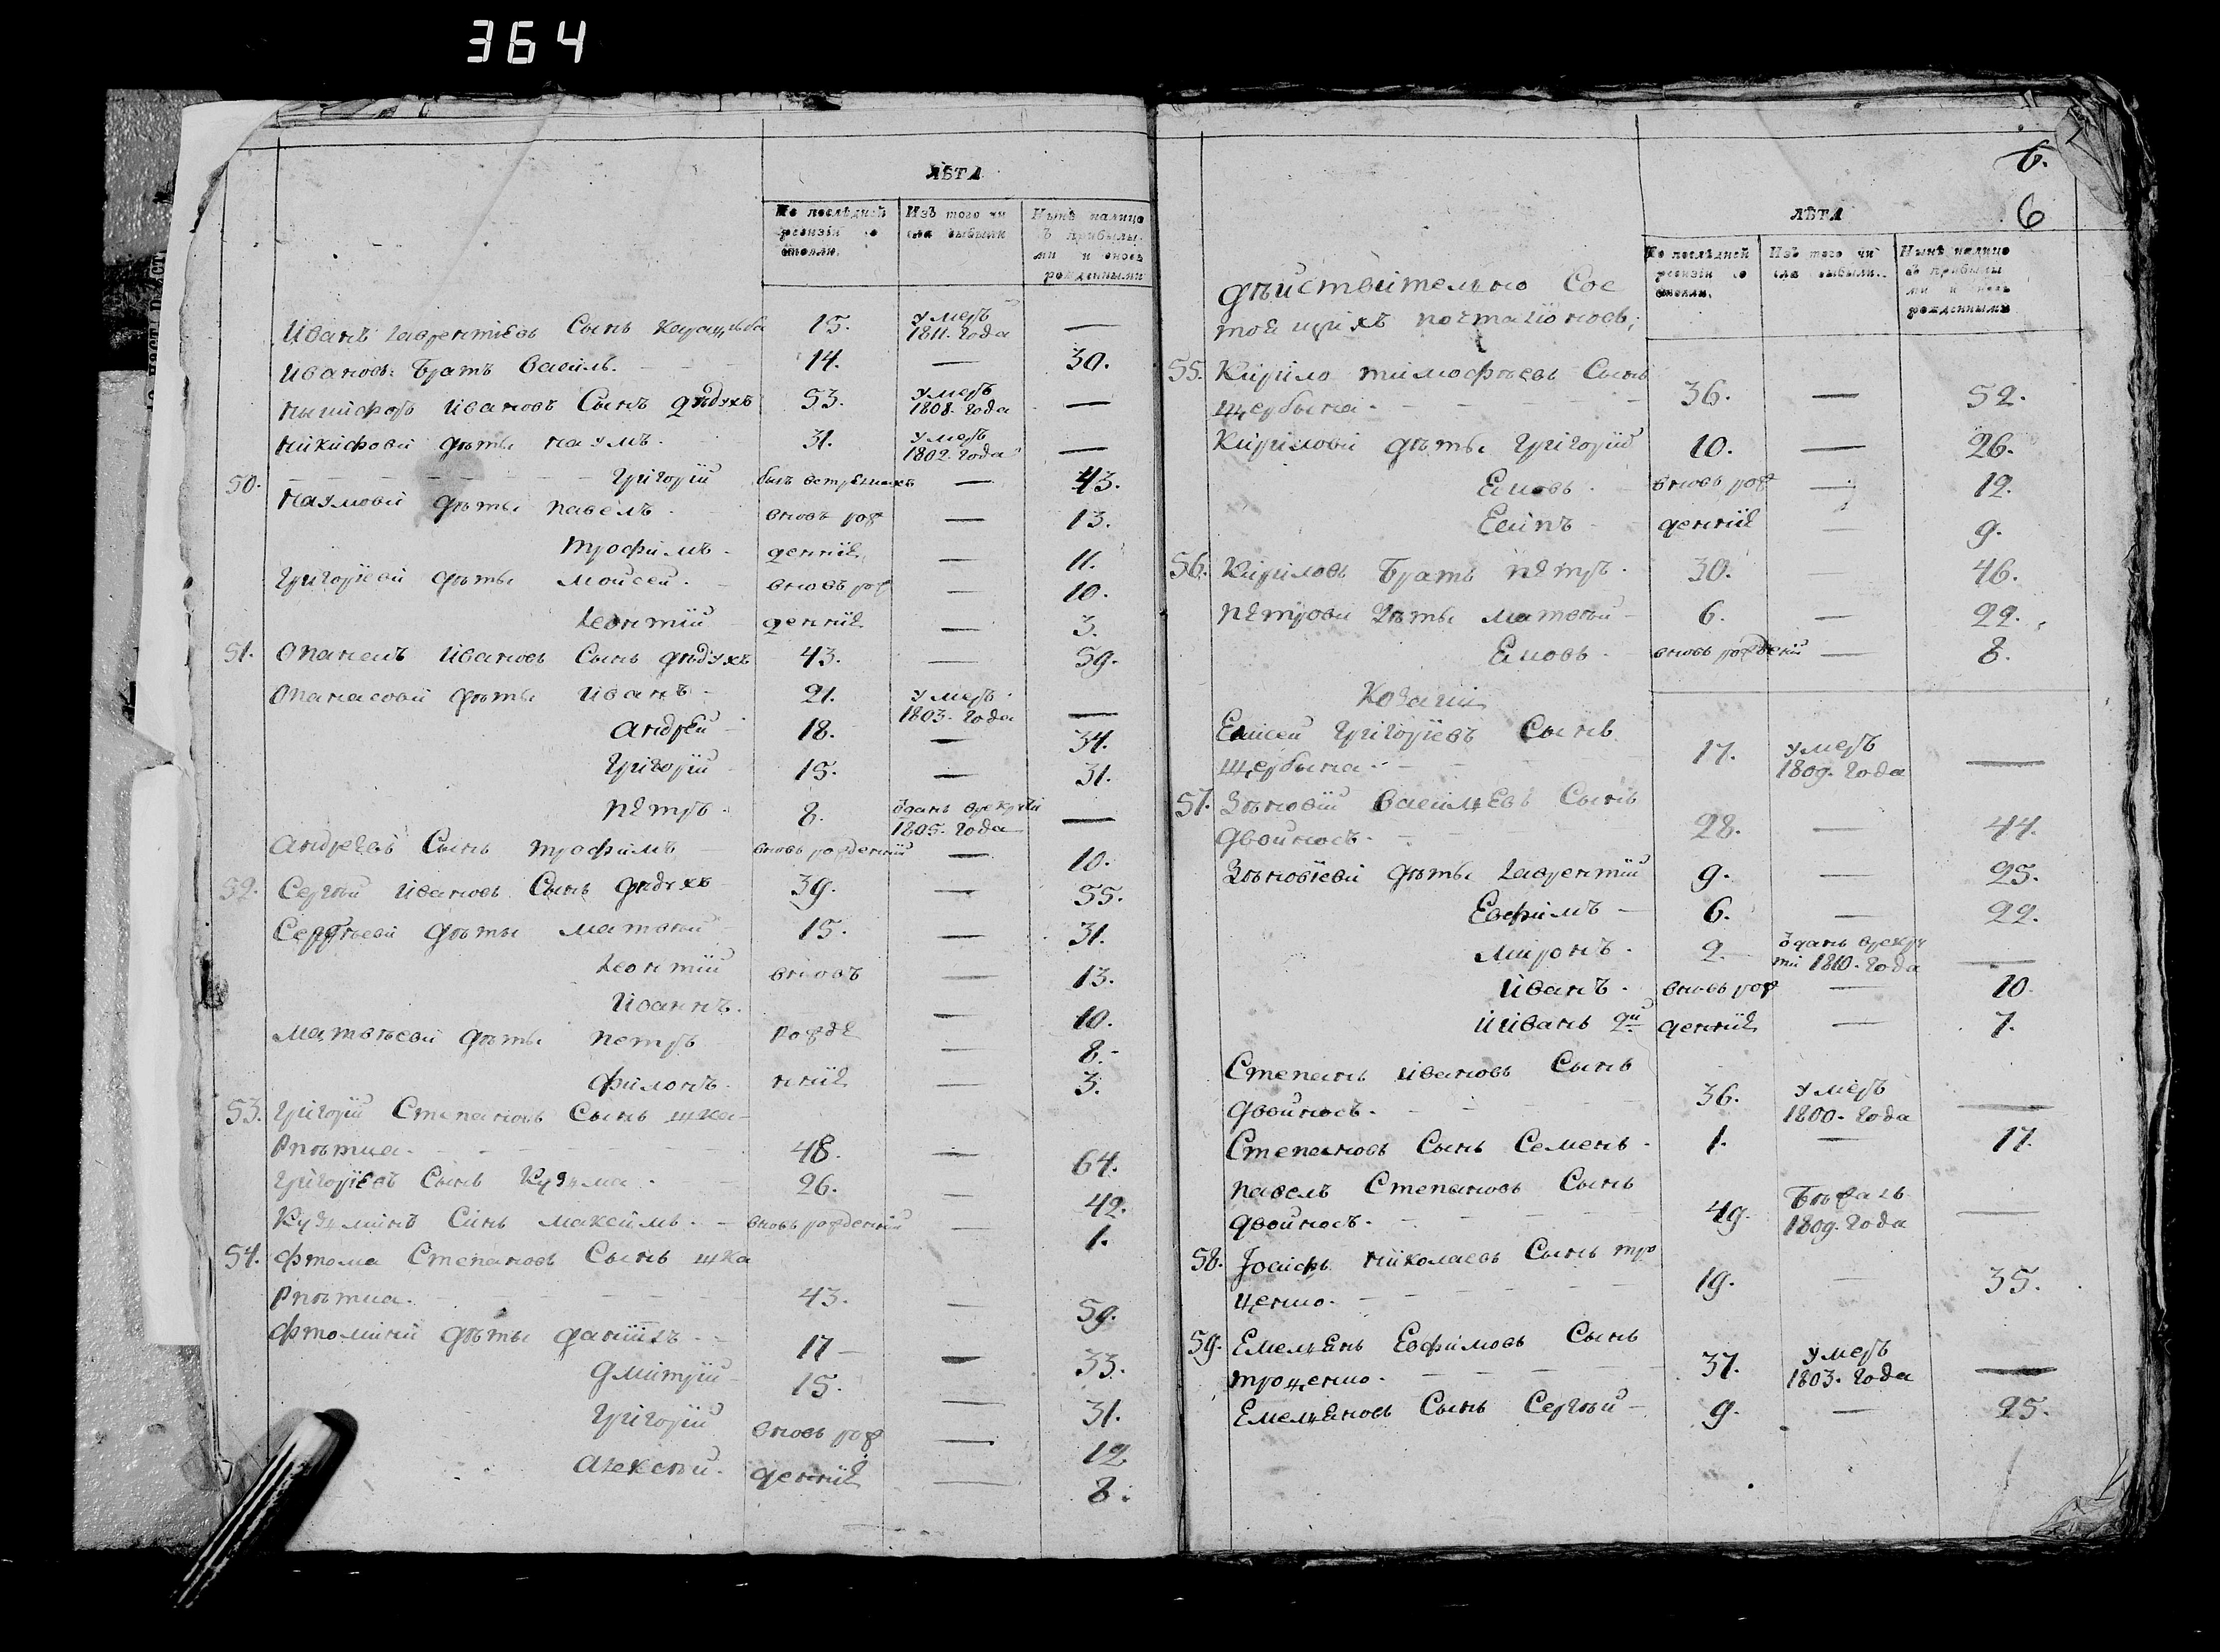 364
ЛѢТА
По послѣдней ревизіи состояли.
Изъ того числа выбыли
Нынѣ налицо съ прибылыми и вновь рожденными
Иванъ Лаврентіевъ Сынъ 15. умеръ 1811. года —
Ивановъ Братъ Василь. 14. — 30.
Никифоръ Ивановъ Сынъ дѣдухъ 53. умеръ 1808. года —
Никифови дѣты наумъ. 31. умеръ 1802. года —
50. Григорій былъ 43.
Наумови дѣты павелъ. вновъ рож — 13.
трофимъ. денніе — 11.
Григоріеви дѣты моисей. вновъ рож — 10.
Леонтій денніе — 3.
51. Опанасъ Ивановъ Сынъ дѣдухъ 43. — 59.
Опанасови дѣты иванъ 21. умеръ 1803. года —
андрей 18. — 34.
Григорій 15. — 31.
петръ. 8. ѿданъ врекруты 1805. года —
андреевъ Сынъ трофимъ вновъ рожденній — 10.
52. Сергѣй Ивановъ Сынъ дѣдухъ 39. — 55.
Сергѣеви дѣты матвѣй 15. — 31.
Леонтій вновъ — 13.
Иваннъ. — 10.
матвѣеви дѣты петръ рожде — 8.
филонъ. нніе — 3.
53. Григорій Степановъ Сынъ шка-
рпѣтка. 48. — 64.
Григоріевъ Сынъ Кузма. 26. — 42.
Кузминъ Синъ максимъ. вновъ рожденній — 1.
54. фтома Степановъ Сынъ шка
рпѣтка. 43. — 59.
фтомини дѣты даніилъ 17 — 33.
дмитрій 15. — 31.
Григорій вновъ рож — 12
алексѣй. денніе — 8.
6.
6
ЛѢТА
По послѣдней ревизіи состояли.
Изъ того числа выбыли.
Нынѣ налицо съ прибылыми и вновь рожденными
дѣйствително Сос
тоящихъ почталіоновъ;
55. Кирило тимофѣевъ Сынъ
щербына. 36. — 52.
Кирилови дѣты Григорій 10. — 26.
Яковъ. вновъ рож — 12.
денніе — 9.
56. Кириловъ Братъ петръ. 30. — 46.
петрови дѣты матвѣй 6. — 22.
Яковъ. вновъ рожденій — 8.
Козаки
Елисей Григоріевъ Сынъ
щербына. 17. умеръ 1809. года —
57. Зѣновій Василіевъ Сынъ
двойносъ. 28. — 44.
Зѣновіеви дѣты Лаврентій 9. — 25.
Евфимъ 6. — 22.
миронъ. 2. ѿданъ врекру ти 1810. года —
иванъ. вновъ рож — 10.
иванъ 2й денніе — 7.
Степанъ Ивановъ Сынъ
двойносъ. 36. умеръ 1800. года —
Степановъ Сынъ Семенъ. 1. — 17.
павелъ Степановъ Сынъ
двойносъ. 49. Бѣжалъ 1809. года —
58. Іосифъ николаевъ Сынъ тро
ценко. 19. — 35.
59. Емелянъ Евфимовъ Сынъ
троценко. 37. умеръ 1803. года —
Емеляновъ Сынъ Сергѣй 9. — 25.